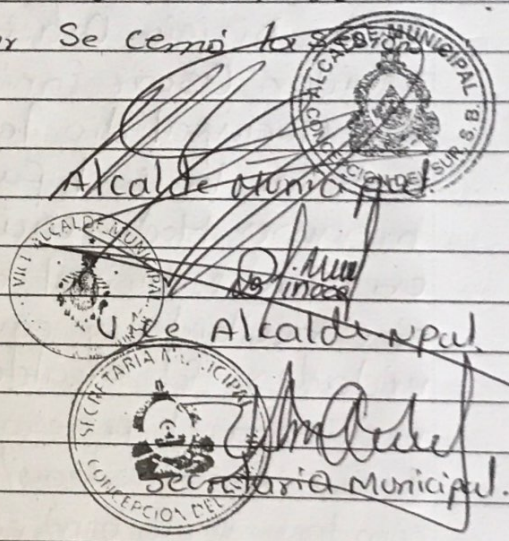 Se cerró la sesión
ALCALDE MUNICIPAL
CONCEPCION DEL SUR, S.B.
Alcalde Municipal.
VICE ALCALDE MUNICIPAL
Vice Alcalde Mpal.
SECRETARIA MUNICIPAL
CONCEPCION DEL
Secretaria Municipal.